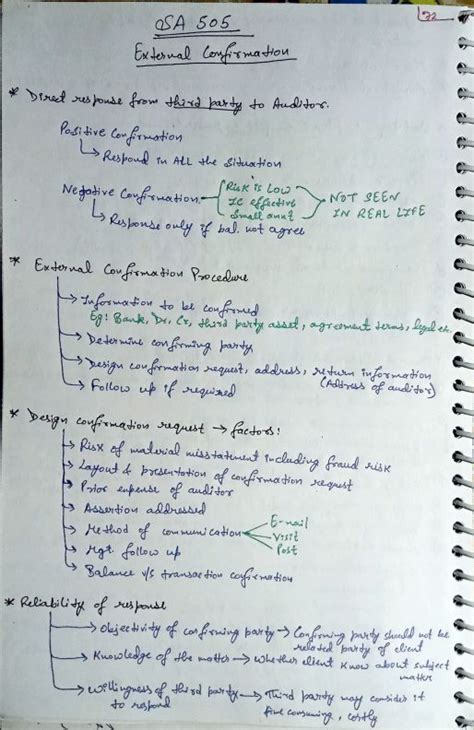 22
SA 505
External Confirmation
* Direct response from third party to Auditor.
Positive Confirmation
↳ Respond in ALL the situation
Negative Confirmation — Risk is Low
IC effective
Small amt
NOT SEEN
IN REAL LIFE
↳ Response only if bal. not agree
* External Confirmation Procedure
→ Information to be confirmed
Eg: Bank, Dr, Cr, third party asset, agreement terms, legal etc.
→ Determine confirming party
→ Design confirmation request, address, return information
(Address of auditor)
→ Follow up if required
* Design confirmation request → factors:
→ Risk of material misstatement including fraud risk
→ Layout & presentation of confirmation request
→ Prior expense of auditor
→ Assertion addressed
→ Method of communication — E-mail
Visit
Post
→ Mgt follow up
→ Balance v/s transaction confirmation
* Reliability of response
→ Objectivity of confirming party → Confirming party should not be
related party of client
→ Knowledge of the matter → Whether client know about subject
matter
→ Willingness of third party → Third party may consider it
to respond
time consuming, costly